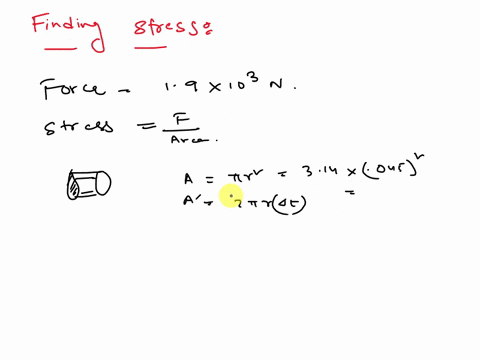 Finding stress:
Force = 1.9 × 10³ N.
stress = F / Area.
A = πr² = 3.14 × (.045)²
A' = 2πr(Δt) =